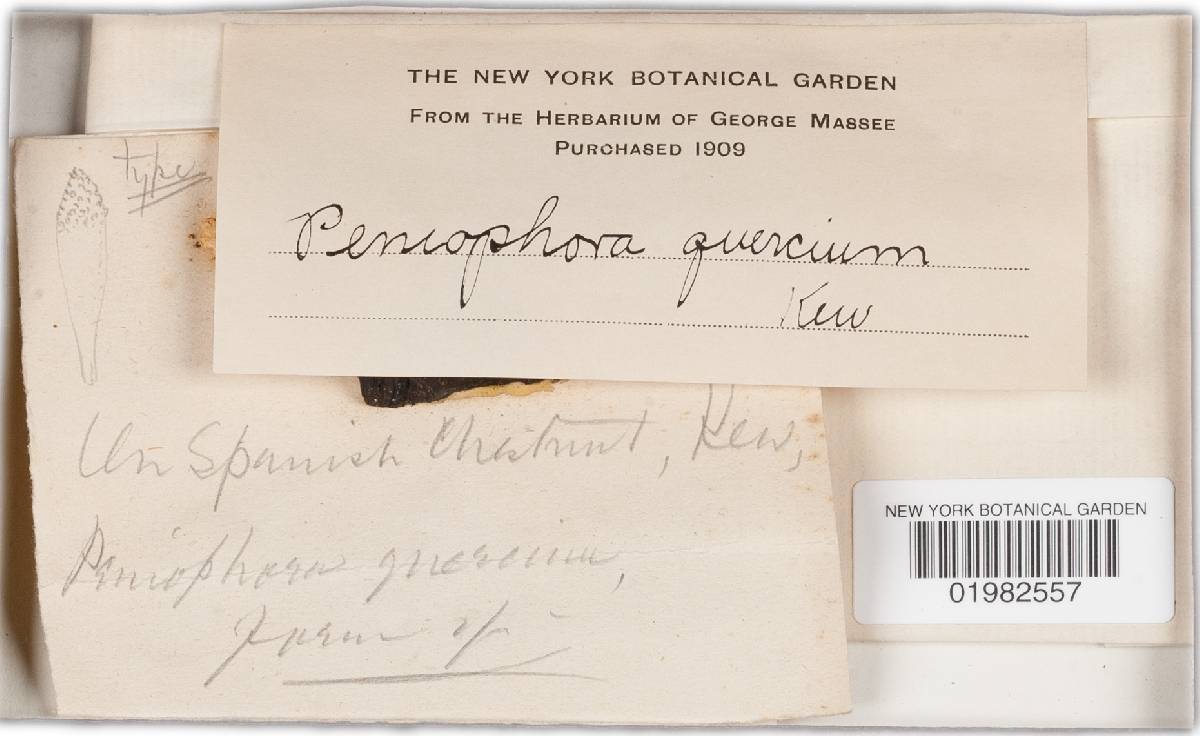 THE NEW YORK BOTANICAL GARDEN
FROM THE HERBARIUM OF GEORGE MASSEE
PURCHASED 1909
Peniophora quercium
Kew
type
On Spanish Chestnut, Kew,
Peniophora quercina,
Form
NEW YORK BOTANICAL GARDEN
01982557